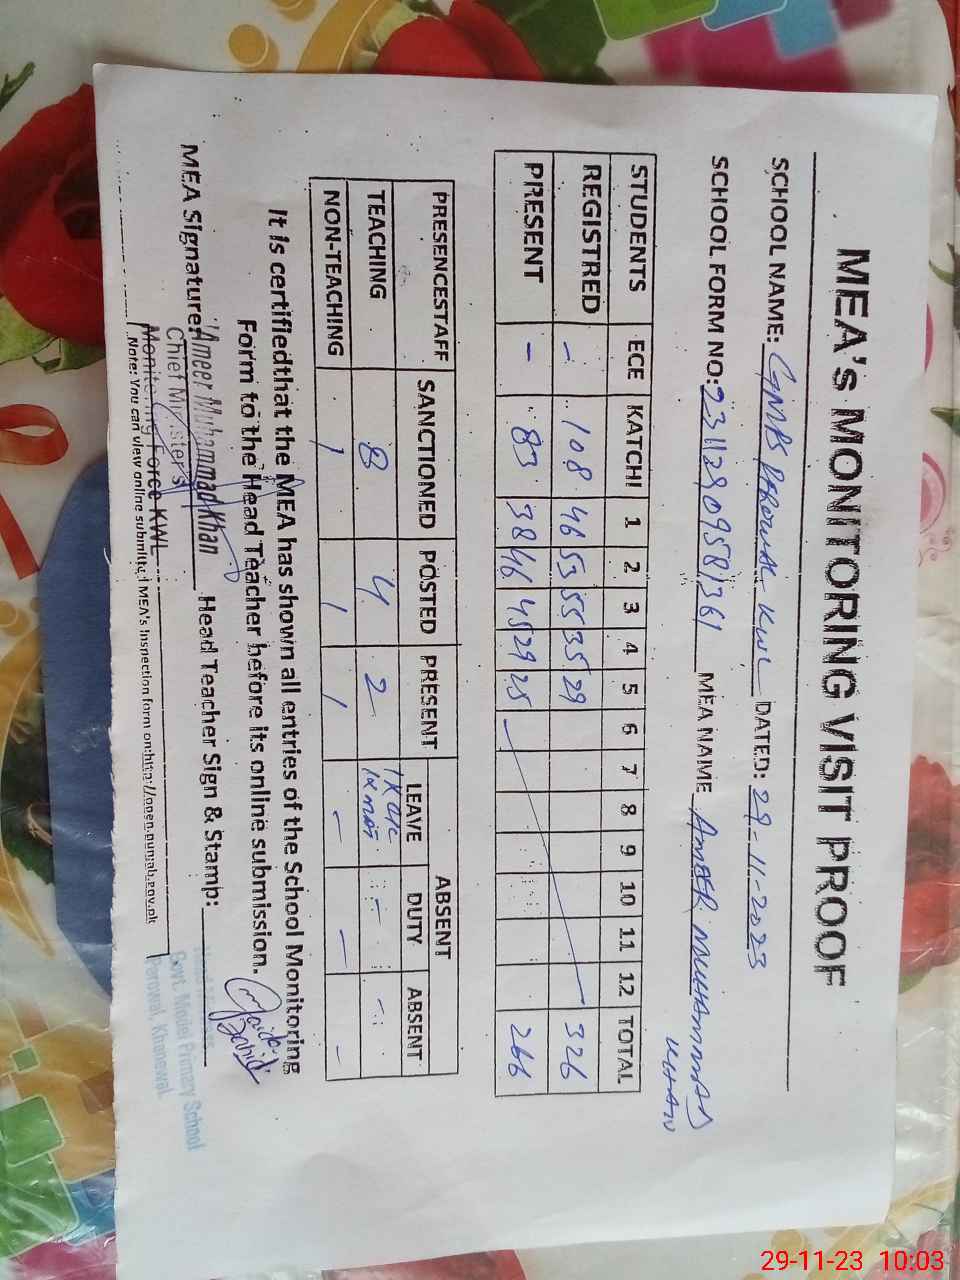 MEA's MONITORING VISIT PROOF
SCHOOL NAME: GMPS PEROWAL KWL DATED: 29-11-2023
SCHOOL FORM NO: 23112909581361 MEA NAME AMEER MUHAMMAD KHAN
STUDENTS ECE KATCHI 1 2 3 4 5 6 7 8 9 10 11 12 TOTAL
REGISTRED - 108 46 53 55 35 29 326
PRESENT - 83 38 46 45 29 25 266
PRESENCESTAFF SANCTIONED POSTED PRESENT ABSENT
LEAVE DUTY ABSENT
TEACHING 8 4 2 - -
NON-TEACHING 1 1 1 - - -
It is certifiedthat the MEA has shown all entries of the School Monitoring
Form to the Head Teacher before its online submission.
MEA Signature: Head Teacher Sign & Stamp:
Ameer Muhammad Khan
Chief Minister's
Monitoring Force KWL
Govt. Model Primary School
Perowal, Khanewal.
Note: You can view online submitted MEA's Inspection form on:http://open.punjab.gov.pk
29-11-23 10:03